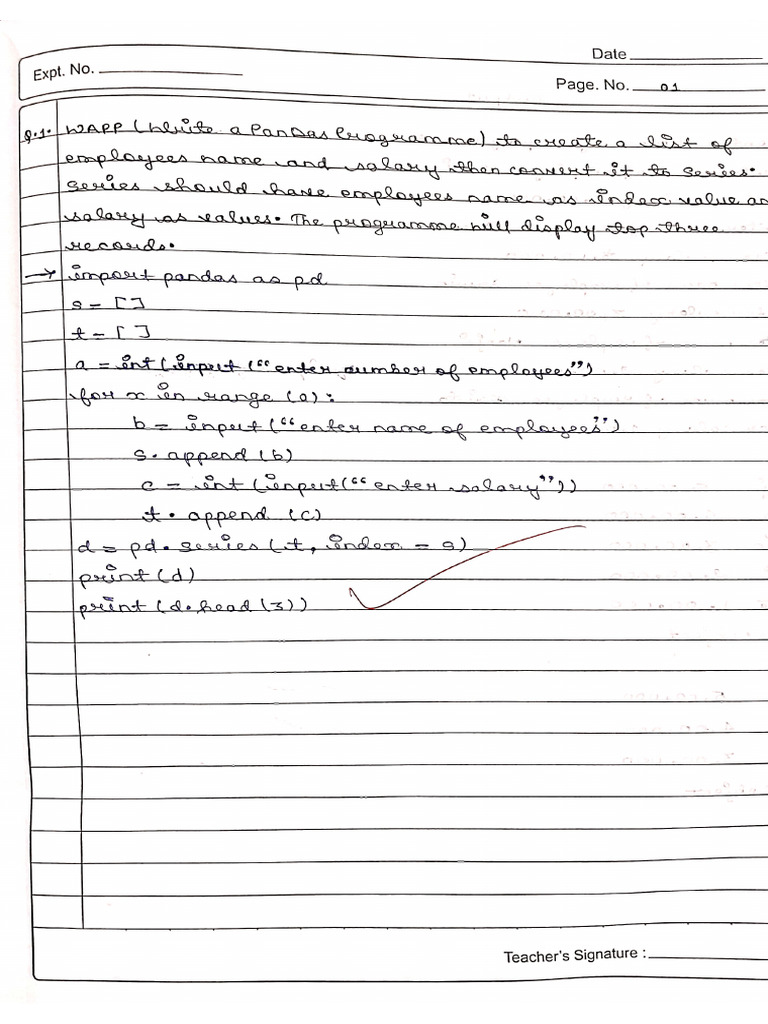 Date
Expt. No.
Page. No. 01
Q.1. WAPP (Write a PanDas Programme) to create a list of
employees name and salary then convert it to series.
Series should have employees name as index value an
salary as values. The programme will display top three
records.
→ import pandas as pd
s = []
t = []
a = int(input(“enter number of employees”)
for x in range (a):
b = input(“enter name of employees”)
s. append (b)
c = int (input(“enter salary”))
t. append (c)
d = pd. series (t, index = s)
print (d)
print (d.head (3))
Teacher's Signature :